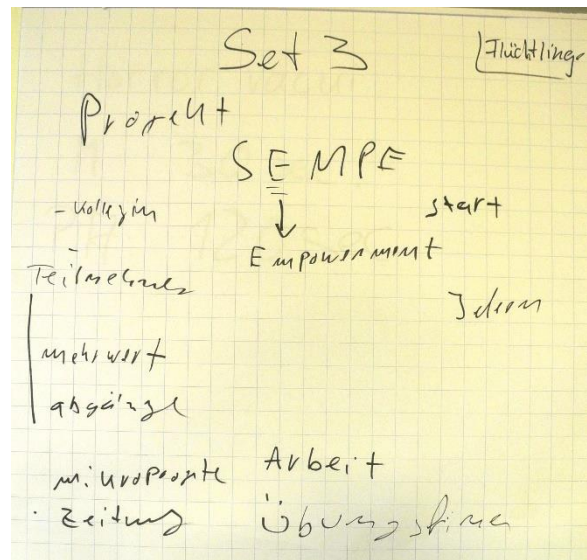 Set 3
Flüchtlinge
Projekt
SEMPE
- Kollegin
start
Empowerment
-
Teilnehmer
Ideen
mehrwert
abgänge
mikroprojekte
Arbeit
· Zeitung
Übungsfirma